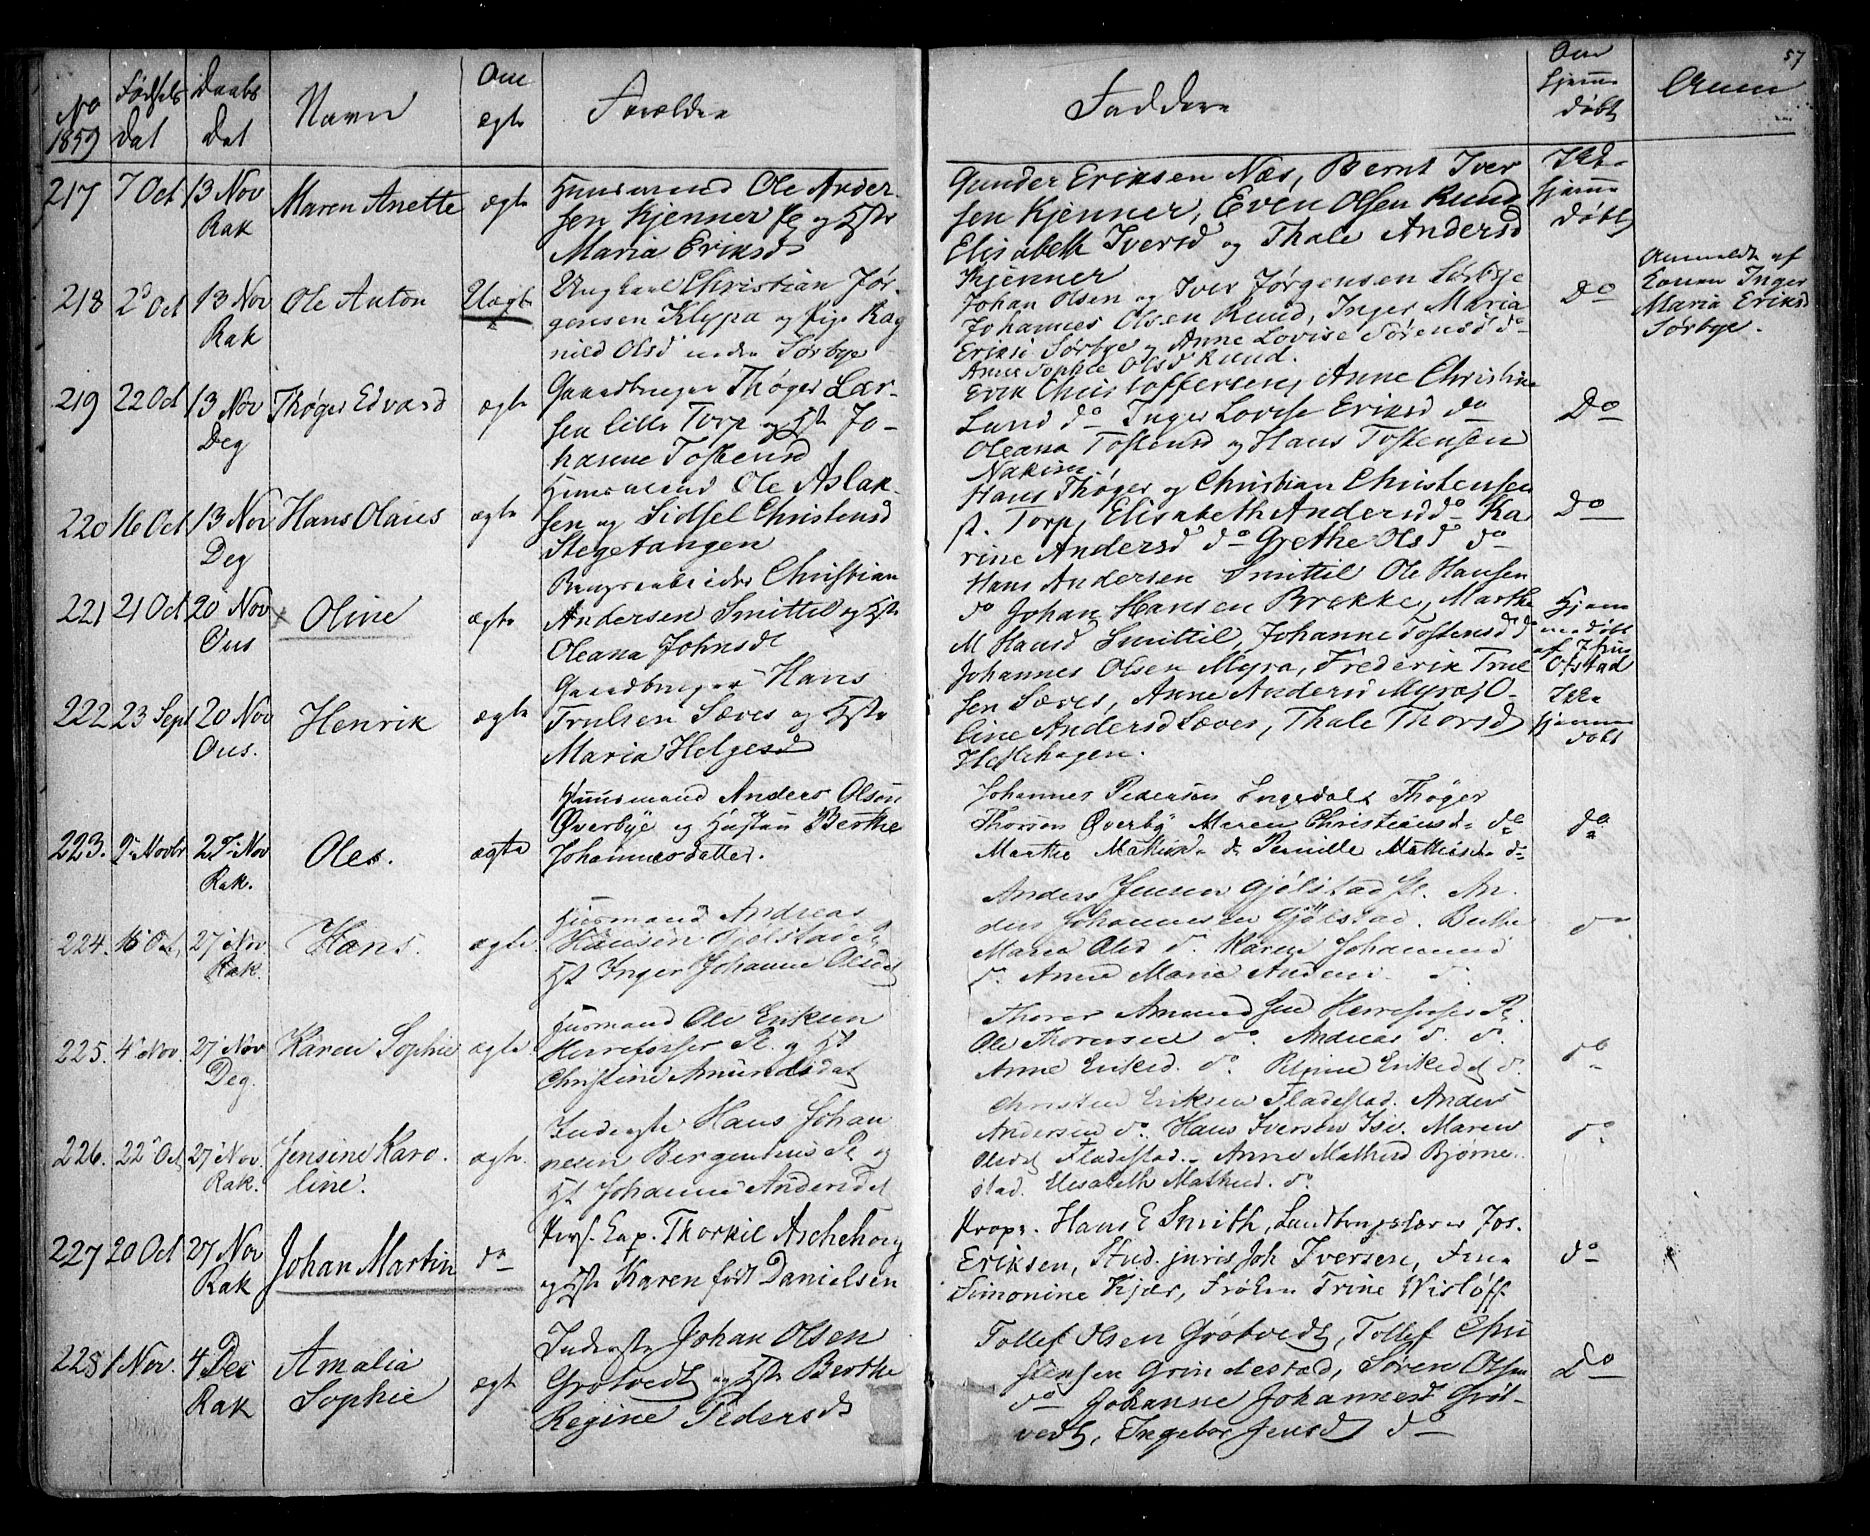 57
No 1859 | Fødsels Dat | Daabs Dat | Navn | Om ægte | Forældre | Faddere | Om hjemme døbt | Anm
217 | 7 Oct | 13 Nov Rak | Maren Anette | ægte
Huusmand Ole Ander-
sen Kjenner Pl og Hstr
Maria Eriksd
Gunder Eriksen Næs, Bernt Iver
sen Kjenner, Even Olsen Rund
Elisabeth Iversd og Thale Andersd
Kjenner
Ikke hjemme døbt
218 | 2 Oct | 13 Nov Rak | Ole Anton | Uægte
Ungkarl Christian Jør-
gensen Klypa og Pige Rag
nild Olsd Sørbye
Johan Olsen og Iver Jørgensen Sørbye
Johannes Olsen Rund, Inger Maria
Eriksd Sørbye og Anne Lovise Sørensd do
Anne Sophie Olsd Rund.
Do
Anmeldt af
Konen Inger
Maria Eriksd
Sørbye.
219 | 22 Oct | 13 Nov Deg | Thøger Edvard | ægte
Gaardbruger Thøger Lar-
sen lille Torp og Hst Jo-
hanne Tostensd
Erik Christoffersen, Anne Christine
Lund do Inger Lovise Eriksd do
Oleana Tostensd og Hans Tostensen
Do
220 | 16 Oct | 13 Nov Deg | Hans Olaus | ægte
Huusmand Ole Aslak-
sen og Sidsel Christensd
Stegetangen
Hans Thøger og Christian Christensen
st. Torp, Elisabeth Andersd do Ka
rine Andersd do Grethe Olsd do
Do
221 | 21 Oct | 20 Nov Ous | Oline | ægte
Brugsarbeider Christian
Andersen Smittil og Hstr
Oleana Johnsd
Hans Andersen Smittil Ole Hansen
do Johan Hansen Brekke, Marthe
M Hansd Smittil, Johanne Tostensd do
Hjemmedøbt af Ofstad
222 | 23 Sept | 20 Nov Ous. | Henrik | ægte
Gaardbruger Hans
Trulsen Sæves og Hstr
Maria Helgesd
Johannes Olsen Myra, Frederik Trul
sen Sæves, Anne Andersd Myra, O-
line Andersd Sæves, Thale Thorsd
Hellehagen.
Ikke hjemme døbt
223. | 2 Novbr | 27 Nov Rak. | Ole. | ægte
Huusmand Anders Olsen
Øverbye og Hustru Berthe
Johannesdatter.
Johannes Pedersen Engedal Thøger
Thorsen Øverby Maren Christiansd. do
Marthe Mathisd. do Pernille Mathisd. do
do
224. | 16 Oct, | 27 Nov Rak. | Hans. | ægte.
Huusmand Andreas
Hansen Gjølstad Pl
Hst Inger Johanne Olsdt
Anders Jensen Gjølstad Pl. An.
ders Johannesen Gjølstad. Berthe
Maria Olsd do. Karen Johannesd
do. Anne Marie Andersd. do.
do
225. | 4 Nov. | 27 Nov Deg. | Karen Sophie | ægte.
Huusmand Ole Eriksen
Herrefosser Pl. og Hst
Christine Amundsdat
Thorer Amundsen Herrefosser Pl.
Ole Thoresen do. Andreas do. do.
Anne Eriksd. do. Eriksdt do.
do
226. | 22 Oct | 27 Nov. Rak. | Jensine Karo. line. | ægte.
Inderste Hans Johan
nesen Bergenhus Pl og
Hst Johanne Andersdt
Christen Eriksen Fladestad. Anders
Andersen do. Hans Iversen Maren
Olsdt Fladestad. Anne Mathisd Bjørne.
stad. Elisabeth Mathisd. do
do
227 | 20 Oct | 27 Nov Rak | Johan Martin | do
Pers. Cap. Thorkil Aschehoug
og Hstr Karen født Danielsen
Propr. Hans E Smith, Landbrugslærer Jos.
Eriksen, Stud. juris Joh Iversen, Fru
Simonine Kjær, Frøken Trine Wisløff
do
228 | 1 Nov. | 4 Dec Rak | Amalia Sophie | ægt
Inderste Johan Olsen
Grøtvedt og Hstr Berthe
Regine Pedersd
Tollef Olsen Grøtvedt, Tollef Chri
stensen Grindestad, Søren Olsen
do Johanne Johannesd Grøt-
vedt, Ingebor Jensd do
Do